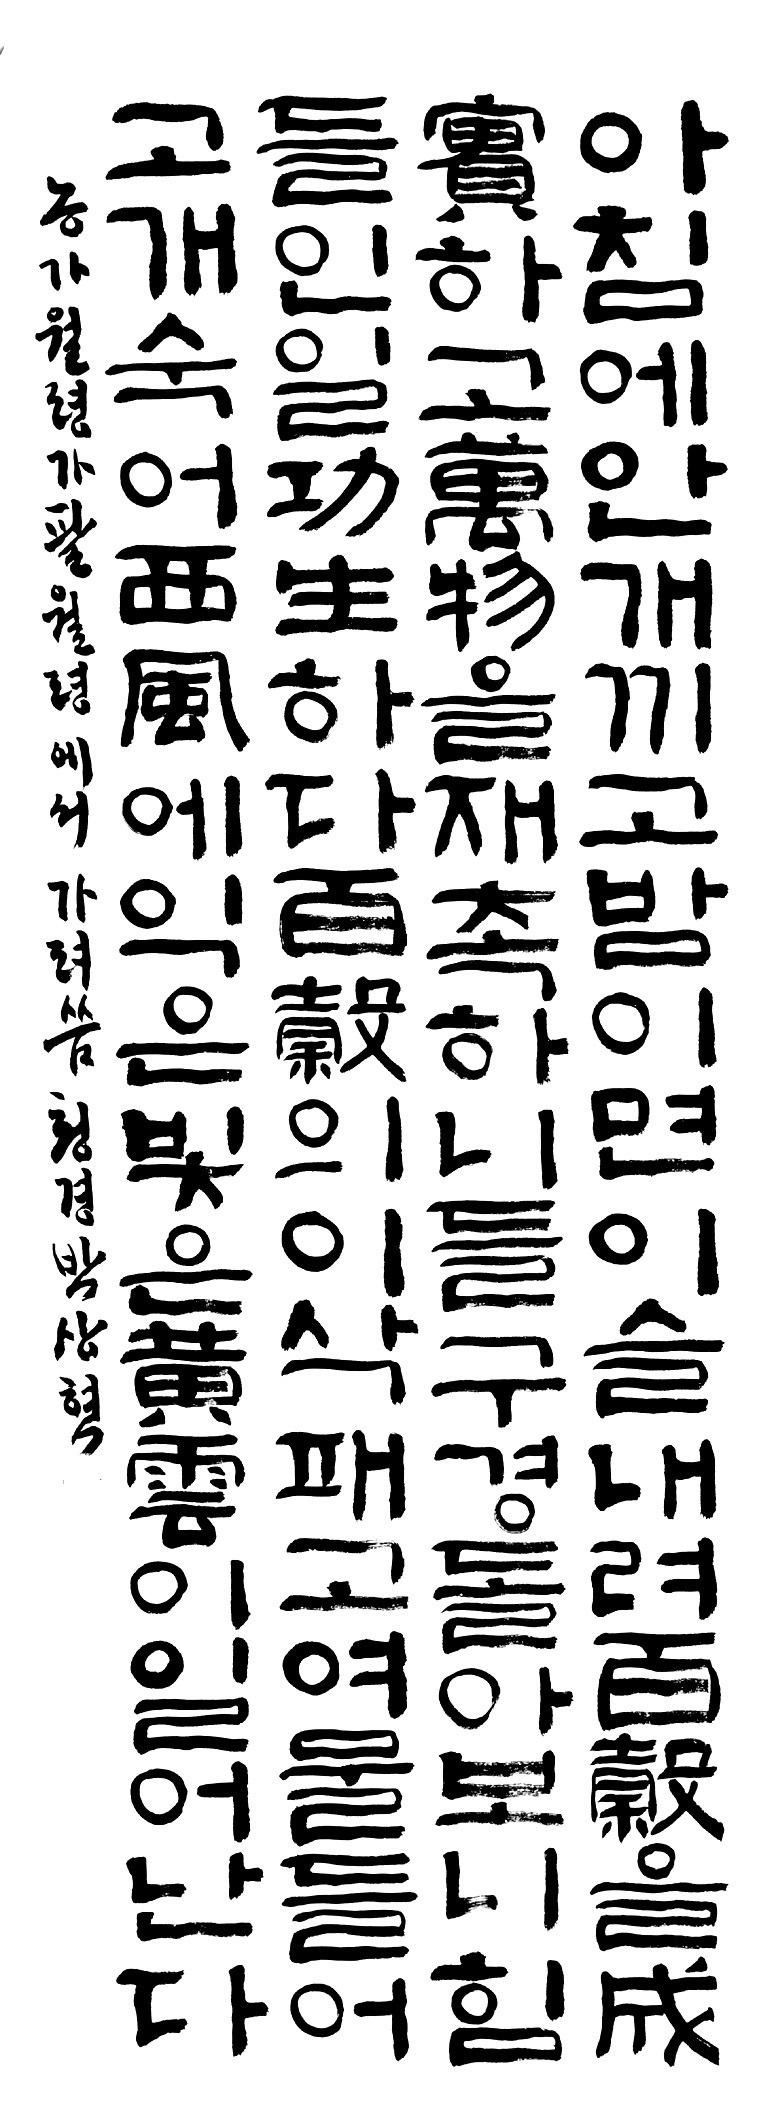 아침에안개끼고밤이면이슬내려百穀을成
實하고萬物을재촉하니들구경돌아보니힘
들인일功生하다百穀의이삭패고여물들어
고개숙어西風에익은빛은黃雲이일어난다
농가월령가팔월령에서 가려씀 청경 박상혁